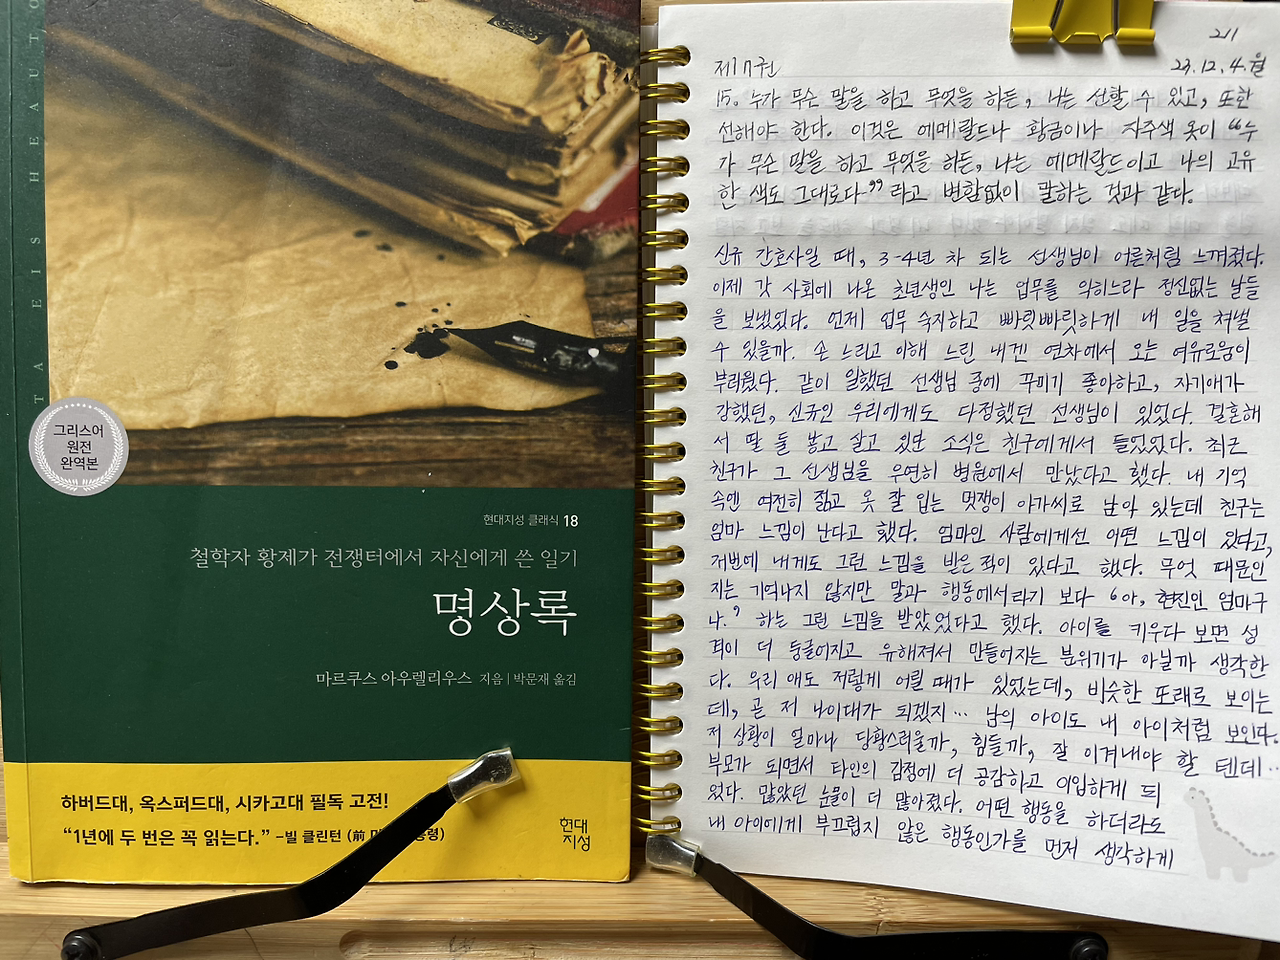 TA EIS HEAUTO
그리스어
원전
완역본
현대지성 클래식 18
철학자 황제가 전쟁터에서 자신에게 쓴 일기
명상록
마르쿠스 아우렐리우스 지음 | 박문재 옮김
하버드대, 옥스퍼드대, 시카고대 필독 고전!
“1년에 두 번은 꼭 읽는다.” –빌 클린턴 (前
현대
지성
211
제17권 23.12.4.월
15. 누가 무슨 말을 하고 무엇을 하든, 나는 선할 수 있고, 또한
선해야 한다. 이것은 에메랄드나 황금이나 자주색 옷이 “누
가 무슨 말을 하고 무엇을 하든, 나는 에메랄드이고 나의 고유
한 색도 그대로다”라고 변함없이 말하는 것과 같다.
신규 간호사일 때, 3-4년 차 되는 선생님이 어른처럼 느껴졌다.
이제 갓 사회에 나온 초년생인 나는 업무를 익히느라 정신없는 날들
을 보냈었다. 언제 업무 숙지하고 빠릿빠릿하게 내 일을 쳐낼
수 있을까. 손 느리고 이해 느린 내겐 연차에서 오는 여유로움이
부러웠다. 같이 일했던 선생님 중에 꾸미기 좋아하고, 자기애가
강했던, 신규인 우리에게도 다정했던 선생님이 있었다. 결혼해
서 딸 둘 낳고 살고 있단 소식은 친구에게서 들었었다. 최근
친구가 그 선생님을 우연히 병원에서 만났다고 했다. 내 기억
속엔 여전히 젊고 옷 잘 입는 멋쟁이 아가씨로 남아 있는데 친구는
엄마 느낌이 난다고 했다. 엄마인 사람에게선 어떤 느낌이 있다고,
저번에 내게도 그런 느낌을 받은 적이 있다고 했다. 무엇 때문인
지는 기억나지 않지만 말과 행동에서라기 보다 ‘아, 현진인 엄마구
나.’ 하는 그런 느낌을 받았었다고 했다. 아이를 키우다 보면 성
격이 더 둥글어지고 유해져서 만들어지는 분위기가 아닐까 생각한
다. 우리 애도 저렇게 어릴 때가 있었는데, 비슷한 또래로 보이는
데, 곧 저 나이대가 되겠지… 남의 아이도 내 아이처럼 보인다.
저 상황이 얼마나 당황스러울까, 힘들까, 잘 이겨내야 할 텐데…
부모가 되면서 타인의 감정에 더 공감하고 이입하게 되
었다. 많았던 눈물이 더 많아졌다. 어떤 행동을 하더라도
내 아이에게 부끄럽지 않은 행동인가를 먼저 생각하게